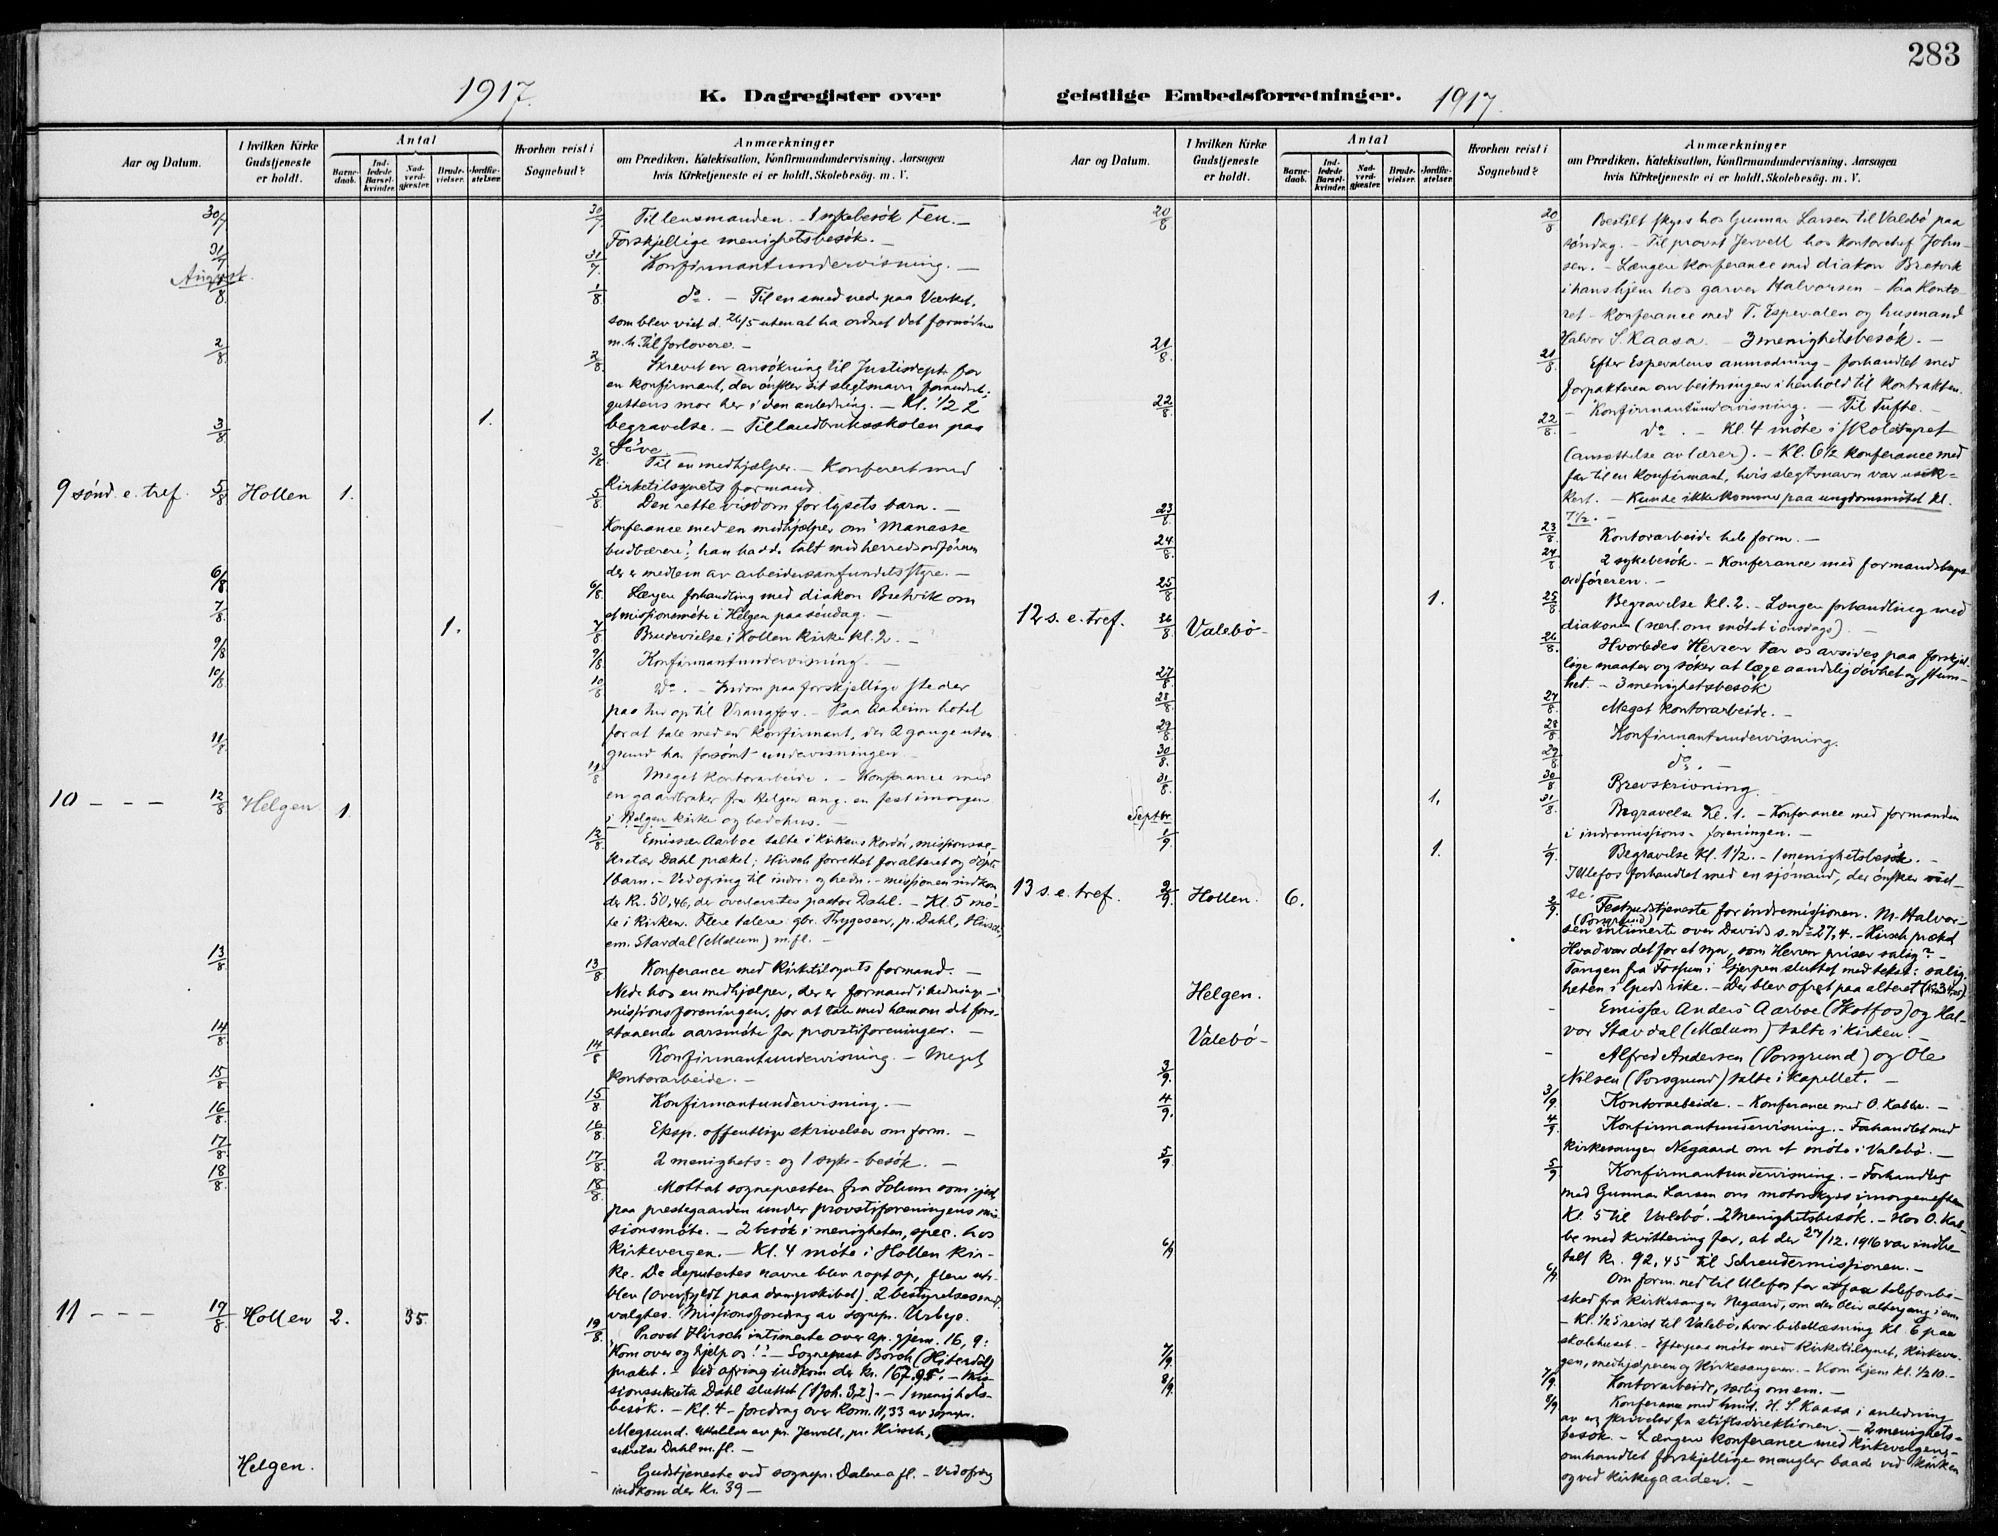 283
1917. K. Dagregister over
geistlige Embedsforretninger. 1917.
Aar og Datum.
I hvilken Kirke Gudstjeneste er holdt.
Antal
Barne-daab.
Ind-ledede Barsel-kvinder.
Nad-verd-gjester.
Brude-vielser.
Jordfæ-stelser.
Hvorhen reist i Sognebud?
Anmærkninger
om Prædiken, Katekisation, Konfirmandundervisning, Aarsagen
hvis Kirketjeneste ei er holdt, Skolebesøg, m. V.
30/7 30/7 Til lensmanden. - 1 sykebesök Fen. -
Forskjellige menighetsbesök. -
31/7 31/7 Konfirmantundervisning. -
August.
1/8 1/8 do. - Til en smed nede paa Værket,
som blev viet d. 26/5 uten at ha ordnet det fornødne
m. h. til forlovere. -
2/8 2/8 Skrevet en ansökning til Justisdept. for
en konfirmant, der önsker sit slegtsnavn forandret;
guttens mor her i den anledning. - Kl. 1/2 2
1. begravelse. - Til landbruksskolen paa
Söve. -
3/8 3/8 Til en medhjælper. - Konferert med
Kirketilsynets formand.
9 sönd. e. tref. 5/8 Hollen 1. 5/8 Den rette visdom for lysets barn. -
Konferance med en medhjælper om "Manasse
budbærere", han hadde talt med herredsordföreren
der er medlem av arbeidersamfundets styre. -
6/8 6/8 Længere forhandling med diakon Bretvik om
et missionsmöte i Helgen paa söndag. -
7/8 1. 7/8 Brudevielse i Hollen kirke kl. 2. -
9/8 9/8 Konfirmantundervisning. -
10/8 10/8 do. - Indom paa forskjellige steder
paa tur op til Vrangfos. - Paa Aaheim hotel
for at tale med en konfirmant, der 2 gange uten
grund har forsömt undervisningen.
11/8 11/8 Meget kontorarbeide. - Konferance med
en gaardbruker fra Helgen ang. en fest imorgen
i Helgen kirke og bedehus. -
10 - - - 12/8 Helgen 1. 12/8 Emissær Aarboe talte i kirkens kordör, missionsse-
kretær Dahl præket; Hirsch forrettet for alteret og döpte
1 barn. - Ved ofring til indre- og hedn.-missionen indkom
der Kr. 50,46, der overlevertes pastor Dahl. - Kl. 5 mö-
te i kirken. Flere talere: gbr. Thygesen, p. Dahl, Hirsch,
em. Stavdal (Mælum) m. fl. -
13/8 13/8 Konferance med Kirketilsynets formand. -
Nede hos en medhjælper, der er formand i hednings-
missionsforeningen, for at tale med ham om det fore-
staaende aarsmöte for provstiforeningen. -
14/8 14/8 Konfirmantundervisning. - Meget
kontorarbeide. -
15/8 15/8 Konfirmantundervisning. -
16/8 16/8 Eksp. offentlige skrivelser om form. -
17/8 17/8 2 menighets- og 1 syke-besök. -
18/8 18/8 Mottat sognepresten fra Solum som gjest
paa prestegaarden under provstiforeningens mis-
sionsmöte. - 2 besök i menigheten, spec. hos
Kirkevergen. - Kl. 4 möte i Hollen kir-
ke. De deputertes navne blev ropt op, flere ute-
blev (overfyldt paa dampskibet). 2 bestyrelsesmed.
valgtes. Missionsforedrag av sognepr. Urbye.
11 - - - 19/8 Hollen 2. 35 19/8 Provst Hirsch intimerte over ap. gjern. 16, 9:
"Kom over og hjelp os!" - Sogneprest Borch (Hiterdal)
præket. - Ved ofring indkom der kr. 167.95. - Mis-
sionssekretær Dahl sluttet (1 Joh. 3,2). - 1 menighets-
besök. - Kl. 4 - foredrag over Rom. 11, 33 av sognepr.
Megrund. Uttalelser av pr. Jervell, pr. Hirsch,
sekretær Dahl m. fl. -
Helgen. - Gudstjeneste ved sognepr. Dalene afl. - Ved ofring
indkom der Kr. 39 -
Aar og Datum.
I hvilken Kirke Gudstjeneste er holdt.
Antal
Barne-daab.
Ind-ledede Barsel-kvinder.
Nad-verd-gjester.
Brude-vielser.
Jordfæ-stelser.
Hvorhen reist i Sognebud?
Anmærkninger
om Prædiken, Katekisation, Konfirmandundervisning, Aarsagen
hvis Kirketjeneste ei er holdt, Skolebesøg, m. V.
20/8 20/8 Bestilt skyds hos Gunnar Larsen til Valebö paa
söndag. - Til provst Jervell hos kontorchef John-
sen. - Længere konferance med diakon Bretvik
i hans hjem hos garver Halvorsen. - Paa konto-
ret - konferance med T. Espevalen og husmand
Halvor S. Kaasa. - 3 menighetsbesök. -
21/8 21/8 Efter Espevalens anmodning - forhandlet med
forpakteren om beitningen i henhold til kontrakten.
- Konfirmantundervisning. - Til Tufte. -
22/8 22/8 do. - Kl. 4 möte i skolestyret
(ansættelse av lærer). - Kl. 6 1/2 konferance med
far til en konfirmant, hvis slegtsnavn var usik-
kert. - Kunde ikke komme paa ungdomsmötet kl.
7 1/2. -
23/8 23/8 Kontorarbeide hele form. -
24/8 24/8 2 sykebesök. - Konferance med formandskaps-
ordföreren. -
25/8 1. 25/8 Begravelse kl. 2. - Længere forhandling med
diakonen (særl. om mötet i onsdags). -
12 s. e. tref. 26/8 Valebö - 26/8 Hvorledes Herren tar os avsides paa forskjel-
lige maater og söker at læge aandelig dövhet og stum-
het. - 3 menighetsbesök
27/8 27/8 Meget kontorarbeide. -
28/8 28/8 Konfirmantundervisning.
29/8 29/8 do. -
30/8 30/8 Brevskrivning.
31/8 1. 31/8 Begravelse kl. 1. - Konferance med formanden
i indremissions-foreningen. -
Septbr.
1/9 1. 1/9 Begravelse kl. 1 1/2. - 1 menighetsbesök. -
I Ulefos forhandlet med en sjömand, der önsker viel-
se.
13 s. e. tref. 2/9 Hollen. 6. 2/9 Festgudstjeneste for indremissionen. M. Halvor-
sen (Porsgrund) intimerte over Davids s. no 27, 4. - Hirsch præket
Hvad var det for et syn, som Herren priser salig? -
Tangen fra Fossum i Gjerpen sluttet med tekst: salig-
heten i Guds rike. - Der blev ofret paa alteret
Helgen. - Emissær Anders Aarboe (Skotfos) og Hal-
vor Stavdal (Mælum) talte i kirken. -
Valebö - - Alfred Andersen (Porsgrund) og Ole
Nilsen (Porsgrund) talte i kapellet. -
3/9 3/9 Kontorarbeide. - Konferance med O. Kabbe. -
4/9 4/9 Konfirmantundervisning. - Forhandlet med
kirkesanger Negaard om et möte i Valebö. -
5/9 5/9 Konfirmantundervisning. - Forhandlet
med Gunnar Larsen om motorskyds imorgen efterm.
kl. 5 til Valebö. 2 Menighetsbesök. - Hos O. Kab-
be med kvittering for, at der 27/12. 1916 var indbe-
talt kr. 92,45 til Schreudermissionen. -
6/9 6/9 Om form. ned til Ulefos for at faa telefonbe-
sked fra kirkesanger Negaard, om der blir altergang i em.
- Kl. 1/2 5 reist til Valebö, hvor bibellæsning kl. 6 paa
skolehuset. - Efterpaa möte med Kirketilsynet, kirkever-
gen, medhjælperen og kirkesangeren. - Kom hjem kl. 1/2 10. -
7/9 7/9 Kontorarbeide, særlig om em. -
8/9 8/9 Konferance med husm. H. S. Kaasa i anledning
av en skrivelse fra stiftsdirektionen. - 2 menighets-
besök. - Længere konferance med kirkevergen;
omhandlet forskjellige mangler baade ved kirken
og ved kirkegaarden. -